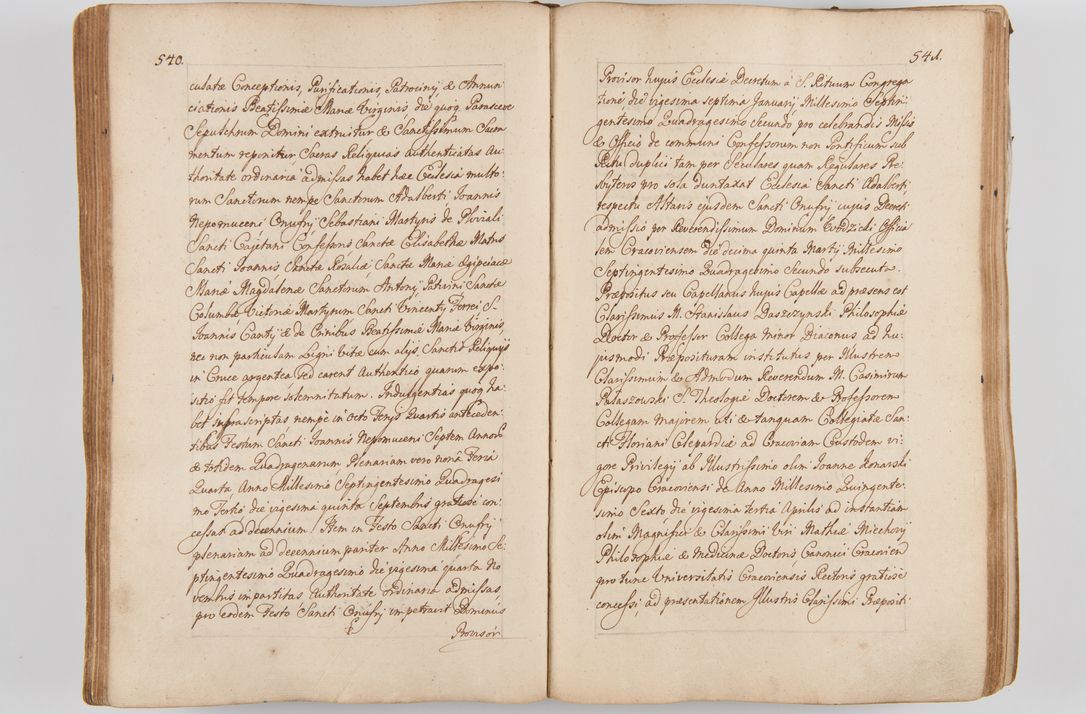 540.
culatæ Conceptionis, Purificationis Patrocinij & Annun
ciationis Beatissimæ Mariæ Virginis die quoq; Parasceve
Sepulchrum Domini extruitur & Sanctissimum Sacra
mentum reponitur Sacras Reliquias authenticatas Au
thoritate ordinaria admissas habet hæc Ecclesia multo
rum Sanctorum nempe Sanctorum Adalberti Joannis
Nepomuceni Onufrij Sebastiani Martyris de Pluviali
Sancti Cajetani Confessoris Sanctæ Elisabethæ Matris
Sancti Joannis Sanctæ Rosaliæ Sanctæ Mariæ Ægipciacæ
Mariæ Magdalenæ Sanctorum Antonij Patvini Sanctæ
Columbæ Victoriæ Martyrum Sancti Vincentij Ferrei S.
Joannis Cantij & de Crinibus Beatissimæ Mariæ Virginis,
nec non particulam Ligni Vitæ cum alijs Sanctis Reliquijs
in Cruce argentea sed carent Authentico quarum expo
sitio fit tempore solemnitatum. Indulgentias quoq; ha
bet suprascriptas nempe in Octo Ferijs Quartis anteceden
tibus Festum Sancti Joannis Nepomuceni Septem Annor
& totidem Quadragenarum, Plenariam vero nona Feria
Quarta, Anno Millesimo Septingentesimo Quadragesi
mo Tertio die vigesima quinta Septembris gratiose con
cessas ad decennium. Item in Festo Sancti Onufrij
plenariam ad decennium pariter Anno Millesimo Se
ptingentesimo Quadragesimo die vigesima quarta No
vembris impartitas Authoritate Ordinaria admissas
pro eodem Festo Sancti Onufrij impetravit Dominus
Provisor
541.
Provisor hujus Ecclesiæ Decretum a S. Rituum Congrega
tione die vigesima septima Januarij Millesimo Septin
gentesimo Quadragesimo Secundo pro celebrandis Missis
& Officio de communi Confessorum non Pontificum sub
Ritu Duplici tam per Seculares quam Regulares Pre
sbyteros pro sola duntaxat Ecclesia Sancti Adalberti
respectu Altaris ejusdem Sancti Onufrij cujus Decreti
admissio per Reverendissimum Dominum Officia
lem Cracoviensem die decima quinta Martij Millesimo
Septingentesimo Quadragesimo Secundo subsecuta.
Præpositus seu Capellanus hujus Capellæ ad præsens est
Clarissimus M. Stanislaus Daszczynski Philosophiæ
Doctor & Professor Collega Minor Diaconus ad hu
jusmodi Præposituram institutus per Illustrem
Clarissimum & Admodum Reverendum M. Casimirum
Pałaszowski S. Theologiæ Doctorem & Professorem
Collegam Majorem uti & tanquam Collegiatæ San
cti Floriani Clepardiæ ad Cracoviam Custodem vi
gore Privilegij ab Illustrissimo olim Joanne Konarski
Episcopo Cracoviensi de Anno Millesimo Quingente
simo Sexto die vigesima tertia Aprilis ad instantiam
olim Magnifici & Clarissimi Viri Mathiæ Miechovij
Philosophiæ & Medicinæ Doctoris Canonici Cracovien
pro tunc Universitatis Cracoviensis Rectoris gratiose
concessi, ad præsentationem Illustris Clarissimi Præpositi